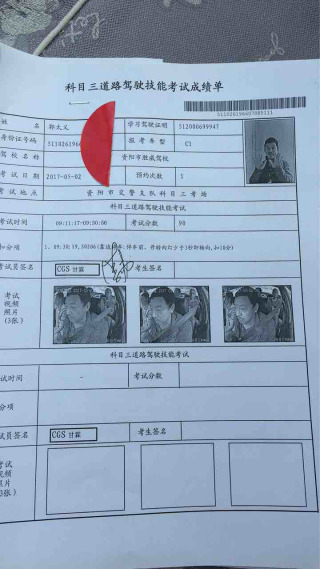 科目三道路驾驶技能考试成绩单
姓 名 郭太义 学习驾驶证明 512000699947
身份证号码 51102619660 报考车型 C1
驾校名称 资阳市胜威驾校
考试日期 2017-05-02 预约次数 1
考试地点 资阳市交警支队科目三考场
科目三道路驾驶技能考试
考试时间 09:11:17-09:30:06 考试分数 90
扣分项 1、09:30:19,30206(靠边停车:停车前,开转向灯少于3秒即转向,扣10分)
考试员签名 CGS 甘霖 考生签名
考试
视频
照片
(3张)
科目三道路驾驶技能考试
考试时间 - 考试分数
扣分项
考试员签名 CGS 甘霖 考生签名
考试
视频
照片
(3张)